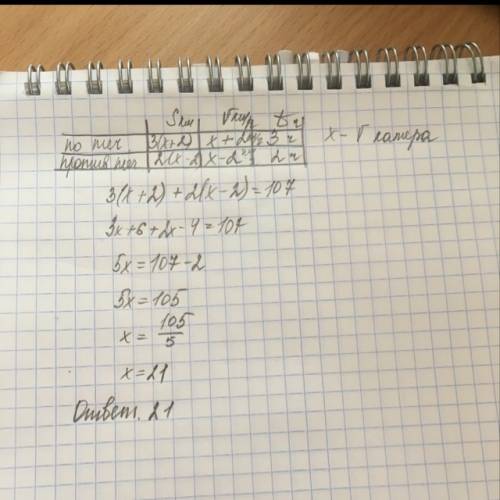 S км V км/ч t ч
по теч. 3(x+2) x+2 км/ч 3 ч x - V катера
против теч 2(x-2) x-2 км/ч 2 ч
3(x+2)+2(x-2)=107
3x+6+2x-4=107
5x=107-2
5x=105
x = 105/5
x=21
Ответ. 21